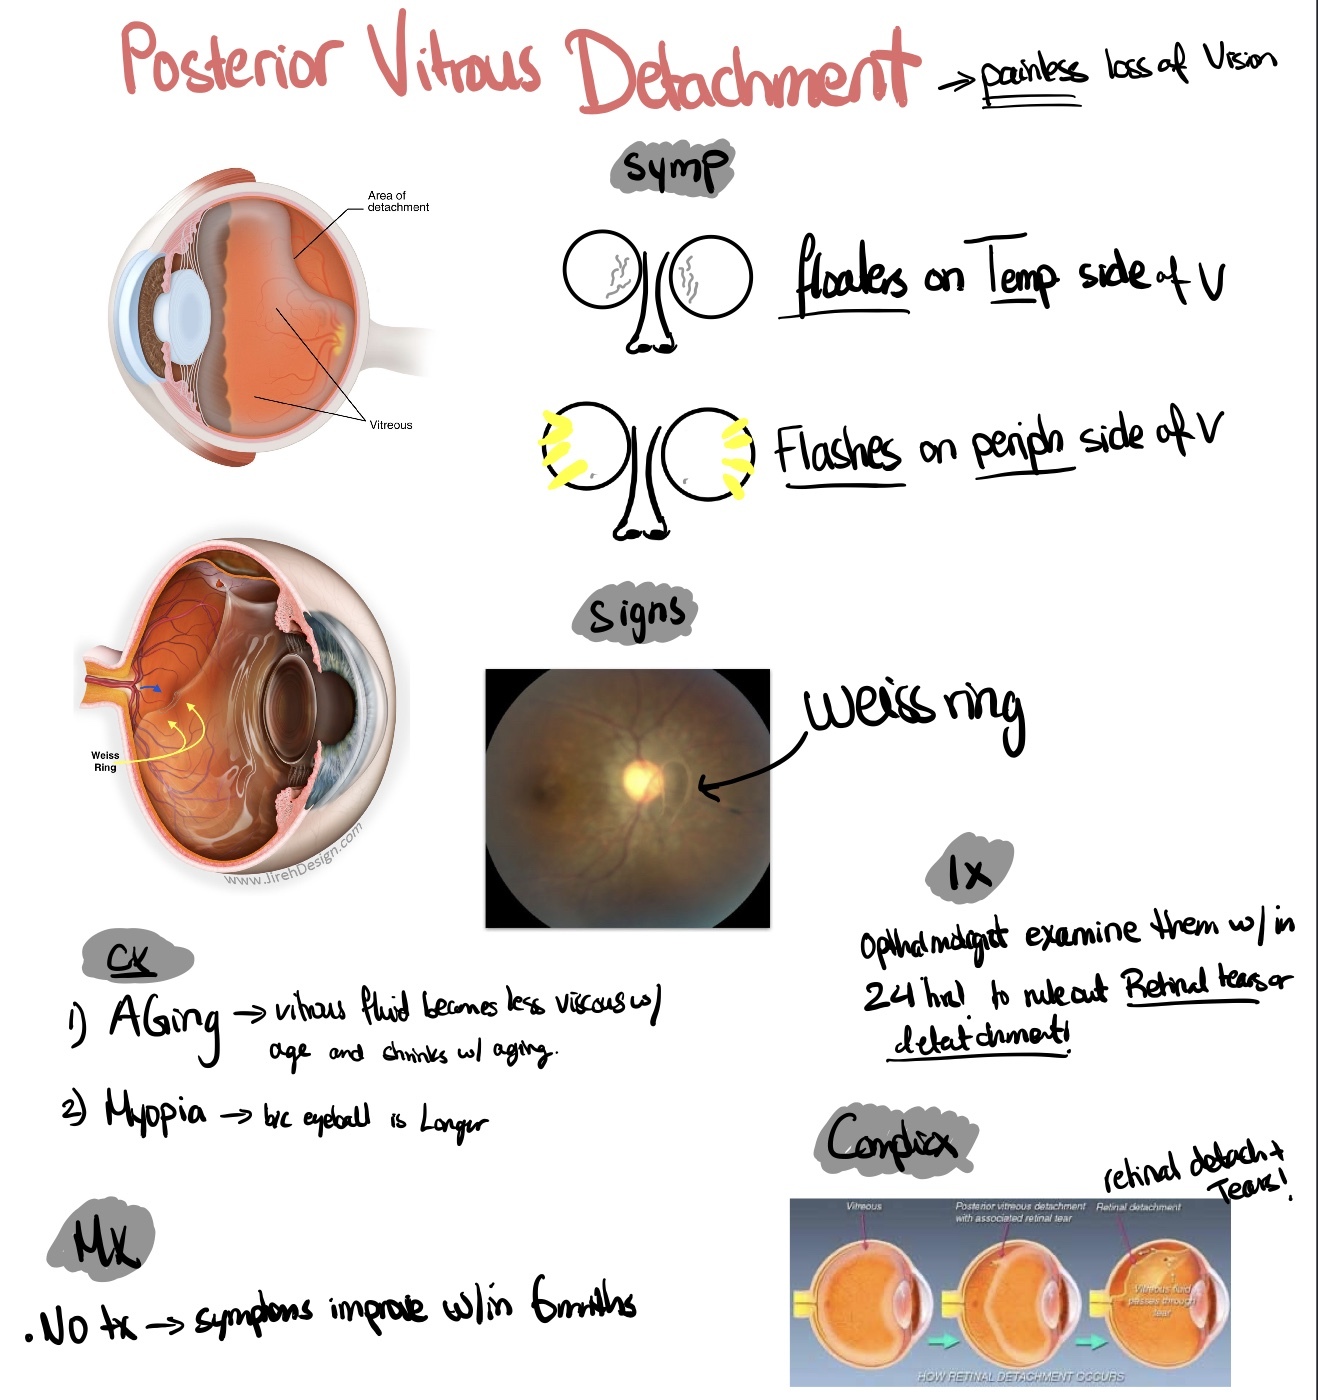 Posterior Vitrous Detachment → painless loss of Vision
Symp
Area of
detachment
Vitreous
floaters on Temp side of V
Flashes on periph side of V
Signs
Weiss ring
Weiss
Ring
www.JirehDesign.com
1x
Opthalmologist examine them w/in
24 hrs! to rule out Retinal tears or
detatchment!
CX
1) AGing → vitrous fluid becomes less viscous w/
age and shrinks w/ aging.
2) Myopia → b/c eyeball is Longer
Complicx
retinal detach +
Tears!
Vitreous
Posterior vitreous detachment
with associated retinal tear
Retinal detachment
Vitreous fluid
passes through
tear
HOW RETINAL DETACHMENT OCCURS
MX
. No tx → symptoms improve w/in 6 months